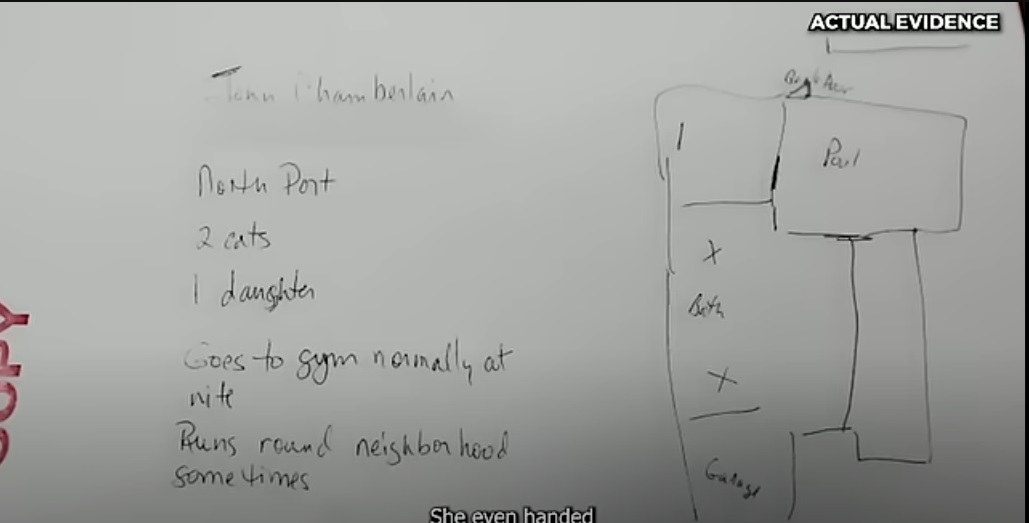 ACTUAL EVIDENCE
Chamberlain
North Port
2 cats
1 daughter
Goes to gym normally at
nite
Runs round neighborhood
sometimes
Pool
X
Bath
X
Garage
COPY
She even handed